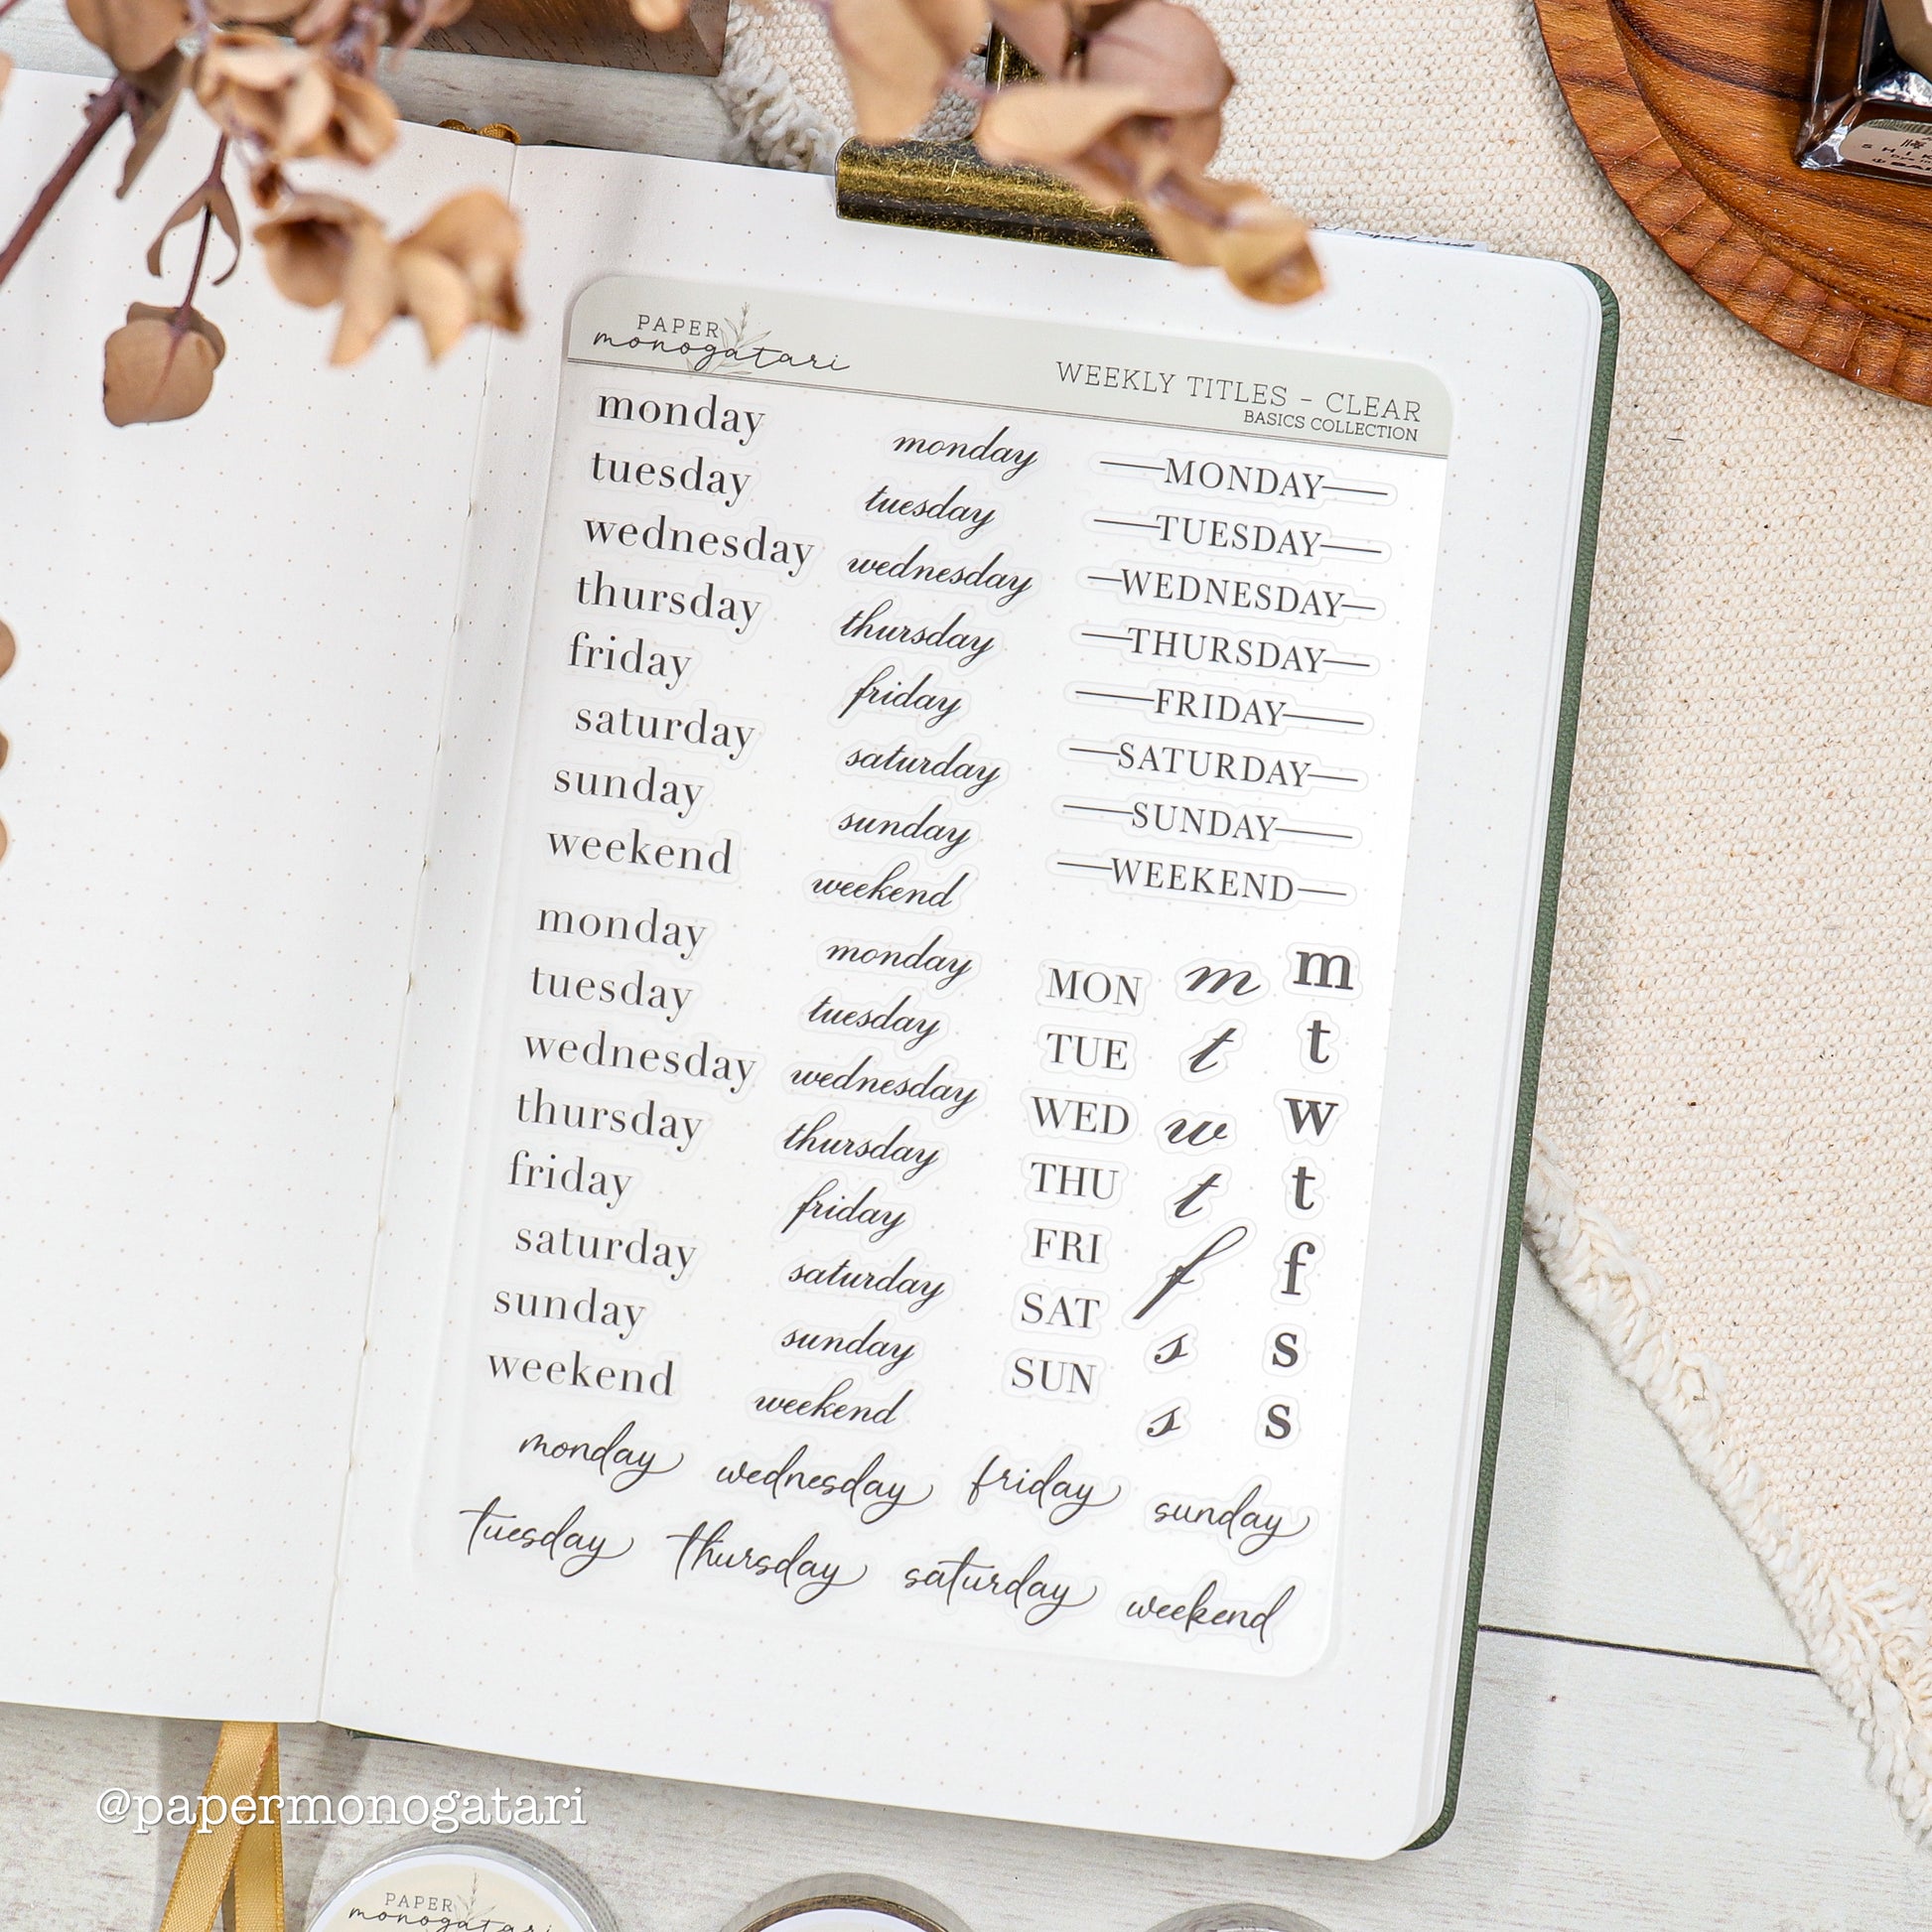 PAPER
monogatari
WEEKLY TITLES - CLEAR
BASICS COLLECTION
monday monday MONDAY
tuesday tuesday TUESDAY
wednesday wednesday WEDNESDAY
thursday thursday THURSDAY
friday friday FRIDAY
saturday saturday SATURDAY
sunday sunday SUNDAY
weekend weekend WEEKEND
monday monday MON m m
tuesday tuesday TUE t t
wednesday wednesday WED w w
thursday thursday THU t t
friday friday FRI f f
saturday saturday SAT s s
sunday sunday SUN s s
weekend weekend
monday wednesday friday sunday
tuesday thursday saturday weekend
@papermonogatari
PAPER
monogatari